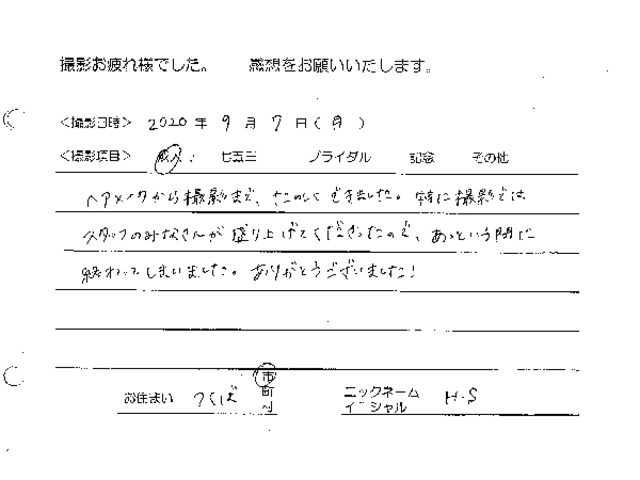 撮影お疲れ様でした。 感想をお願いいたします。
<撮影日時> 2020 年 9 月 7 日 ( 月 )
<撮影項目> 成人 ・ 七五三 ブライダル 記念 その他
ヘアメイクから撮影まで、たのしくできました。特に撮影では
スタッフのみなさんが盛り上げてくださったので、あっという間に
終わってしまいました。ありがとうございました!
お住まい つくば 市 町 村
ニックネーム イニシャル H.S